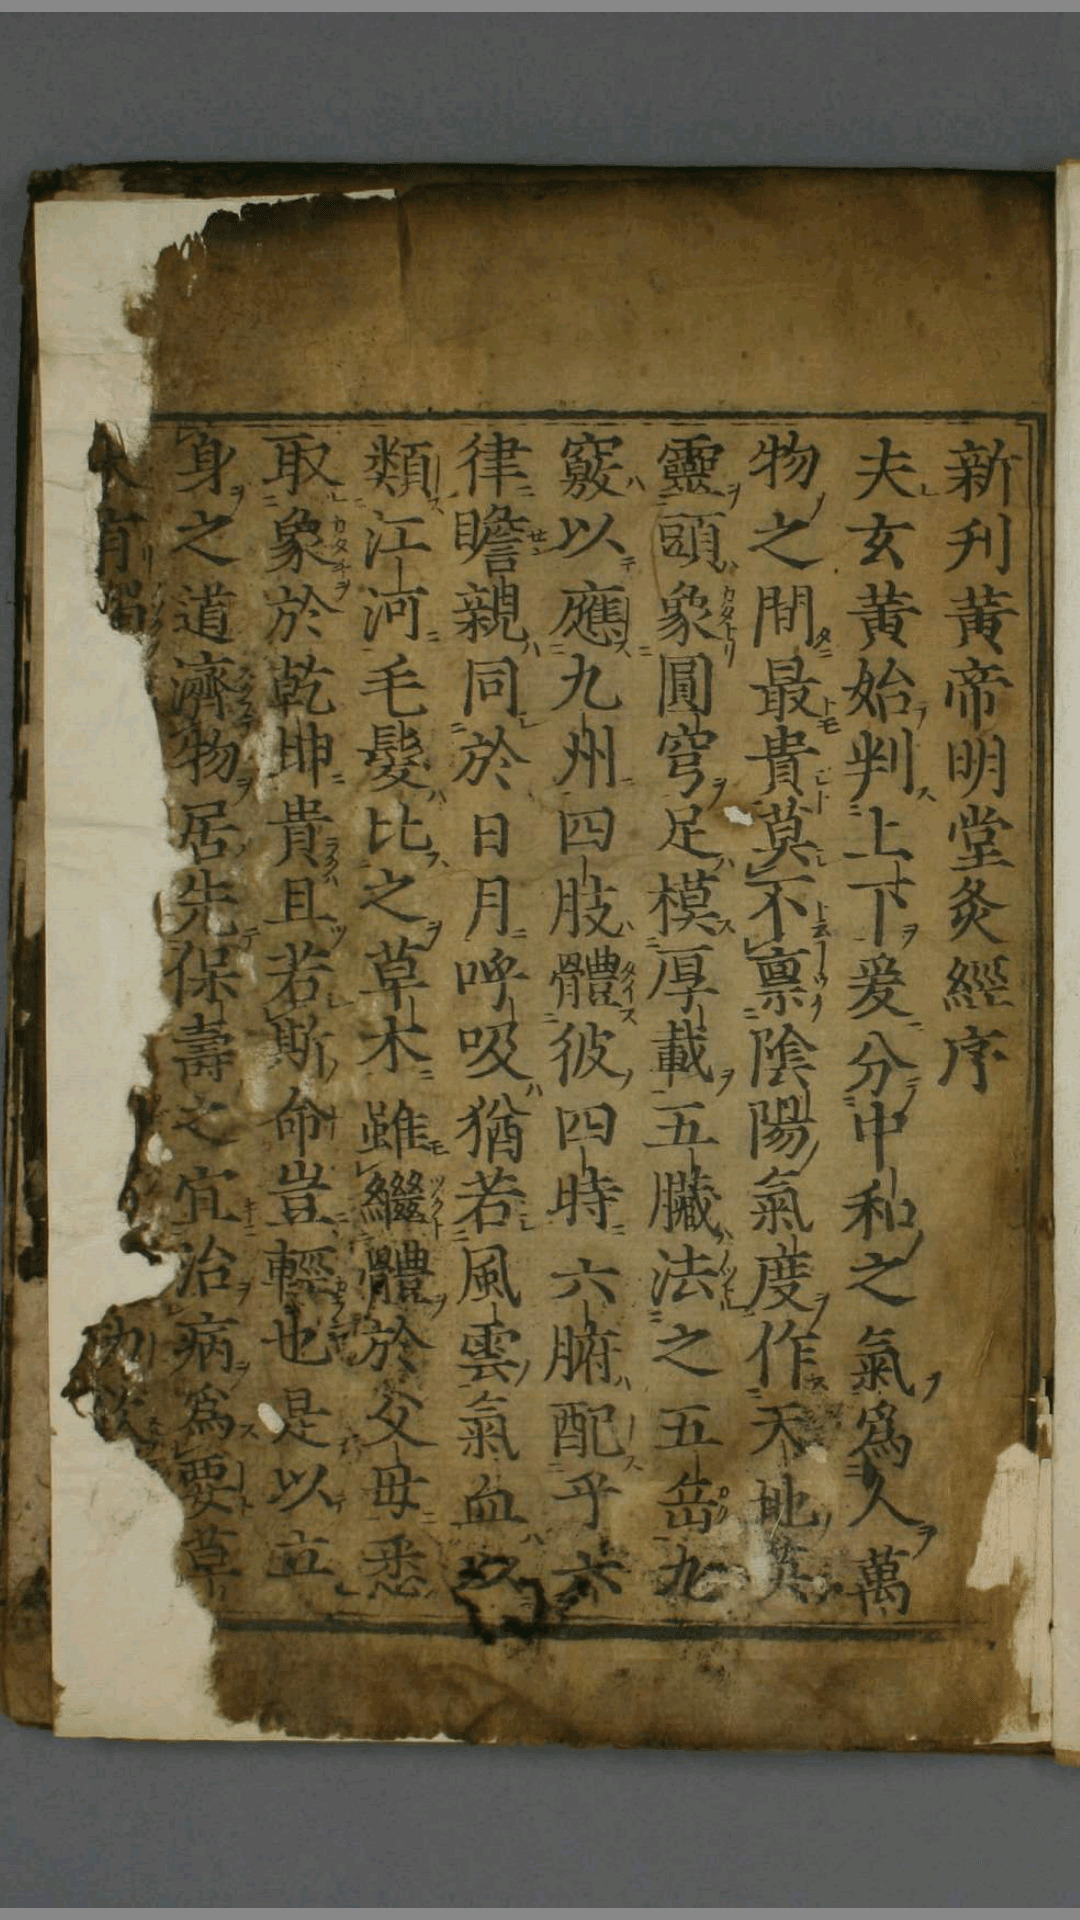 新刋黄帝明堂灸經序
夫玄黄始判上下爰分中和之氣爲人萬
物之間最貴莫不禀陰陽氣度作天地
靈頭象圓穹足模厚載五臟法之五岳九
竅以應九州四肢體彼四時六腑配乎六
律瞻視同於日月呼吸猶若風雲氣血
類江河毛髮比之草木雖綴體於父母悉
取象於乾坤貴且若斯命豈輕也是以立
身之道濟物居先保壽之宜治病爲要草
木有